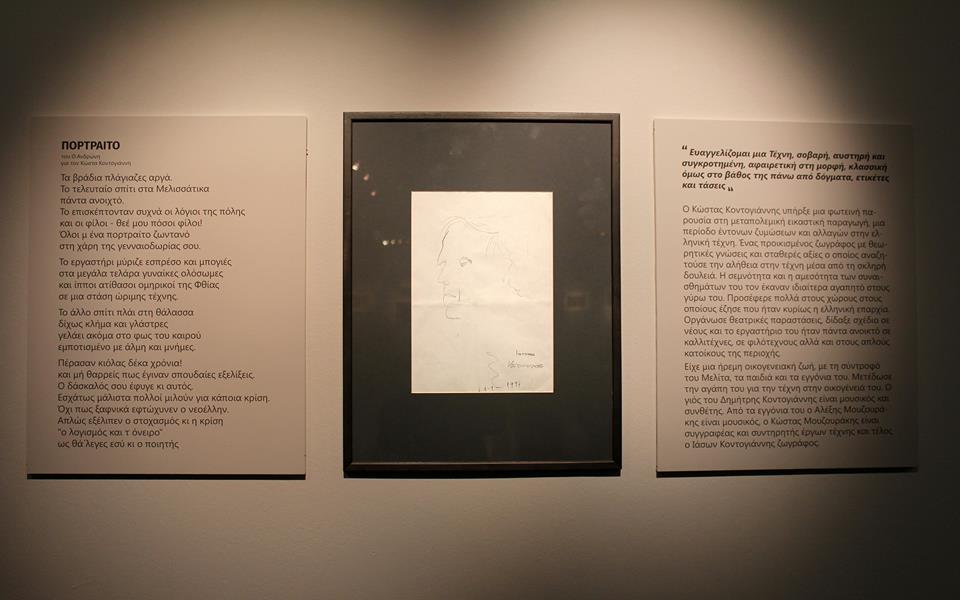 ΠΟΡΤΡΑΙΤΟ
του Ο.Ανδρώνη
για τον Κώστα Κοντογιάννη
Τα βράδια πλάγιαζες αργά.
Το τελευταίο σπίτι στα Μελισσάτικα
πάντα ανοιχτό.
Το επισκέπτονταν συχνά οι λόγιοι της πόλης
και οι φίλοι - θεέ μου πόσοι φίλοι!
Όλοι μ ένα πορτραίτο ζωντανό
στη χάρη της γενναιοδωρίας σου.
Το εργαστήρι μύριζε εσπρέσο και μπογιές
στα μεγάλα τελάρα γυναίκες ολόσωμες
και ίπποι ατίθασοι ομηρικοί της Φθίας
σε μια στάση ώριμης τέχνης.
Το άλλο σπίτι πλάι στη θάλασσα
δίχως κλήμα και γλάστρες
γελάει ακόμα στο φως του καιρού
εμποτισμένο με άλμη και μνήμες.
Πέρασαν κιόλας δέκα χρόνια!
και μή θαρρείς πως έγιναν σπουδαίες εξελίξεις.
Ο δάσκαλός σου έφυγε κι αυτός.
Εσχάτως μάλιστα πολλοί μιλούν για κάποια κρίση.
Όχι πως ξαφνικά εφτώχυνεν ο νεοέλλην.
Απλώς εξέλιπεν ο στοχασμός κι η κρίση
"ο λογισμός και τ όνειρο"
ως θά λεγες εσύ κι ο ποιητής
1-1-1991
“ Ευαγγελίζομαι μια Τέχνη, σοβαρή, αυστηρή και
συγκροτημένη, αφαιρετική στη μορφή, κλασσική
όμως στο βάθος της πάνω από δόγματα, ετικέτες
και τάσεις „
Ο Κώστας Κοντογιάννης υπήρξε μια φωτεινή πα-
ρουσία στη μεταπολεμική εικαστική παραγωγή, μια
περίοδο έντονων ζυμώσεων και αλλαγών στην ελ-
ληνική τέχνη. Ένας προικισμένος ζωγράφος με θεω-
ρητικές γνώσεις και σταθερές αξίες ο οποίος αναζη-
τούσε την αλήθεια στην τέχνη μέσα από τη σκληρή
δουλειά. Η σεμνότητα και η αμεσότητα των συναι-
σθημάτων του τον έκαναν ιδιαίτερα αγαπητό στους
γύρω του. Προσέφερε πολλά στους χώρους στους
οποίους έζησε που ήταν κυρίως η ελληνική επαρχία.
Οργάνωσε θεατρικές παραστάσεις, δίδαξε σχέδιο σε
νέους και το εργαστήριο του ήταν πάντα ανοικτό σε
καλλιτέχνες, σε φιλότεχνους αλλά και στους απλούς
κατοίκους της περιοχής.
Είχε μια ήρεμη οικογενειακή ζωή, με τη σύντροφό
του Μελίτα, τα παιδιά και τα εγγόνια του. Μετέδωσε
την αγάπη του για την τέχνη στην οικογένειά του. Ο
γιός του Δημήτρης Κοντογιάννης είναι μουσικός και
συνθέτης. Από τα εγγόνια του ο Αλέξης Μουζουρά-
κης είναι μουσικός, ο Κώστας Μουζουράκης είναι
συγγραφέας και συντηρητής έργων τέχνης και τέλος
ο Ιάσων Κοντογιάννης ζωγράφος.